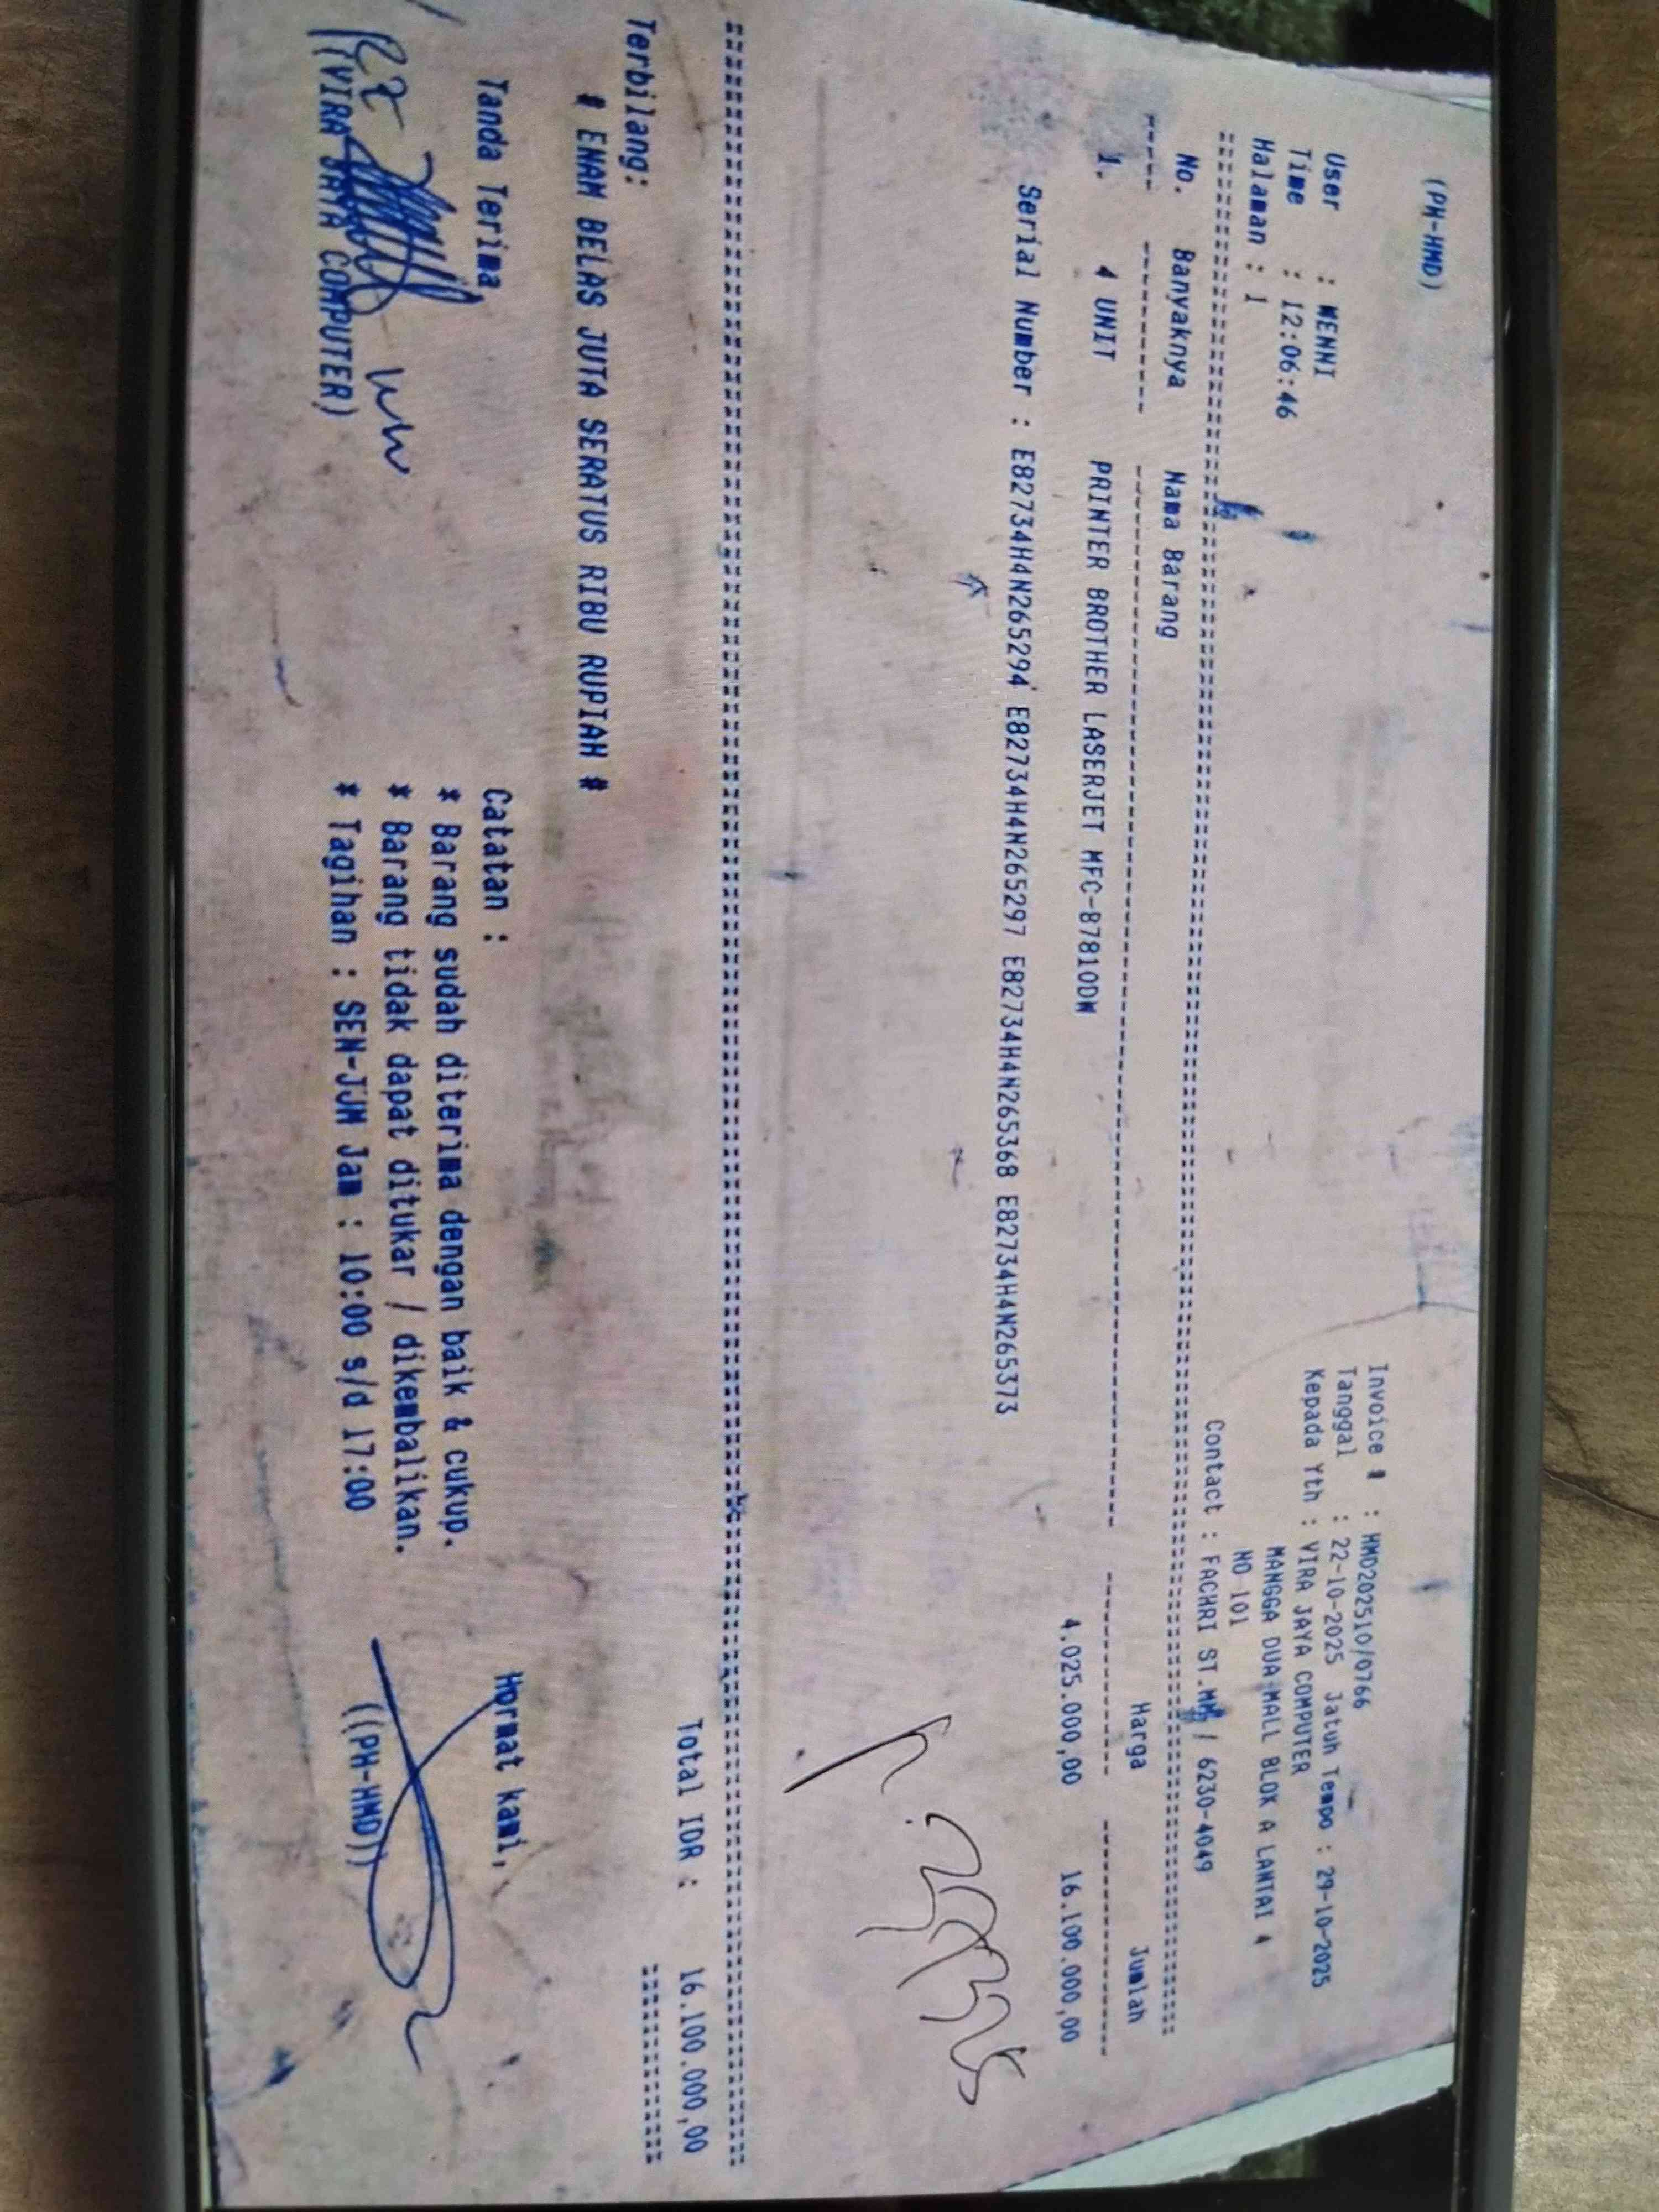 (PH-HMD)
User : WENNI
Time : 12:06:46
Halaman : 1
Invoice # : HMD202510/0766
Tanggal : 22-10-2025 Jatuh Tempo : 29-10-2025
Kepada Yth : VIRA JAYA COMPUTER
MANGGA DUA MALL BLOK A LANTAI 4
NO 101
Contact : FACHRI ST.MM / 6230-4049
No. Banyaknya Nama Barang Harga Jumlah
1. 4 UNIT PRINTER BROTHER LASERJET MFC-B7810DW 4.025.000,00 16.100.000,00
Serial Number : E82734H4N265294 E82734H4N265297 E82734H4N265368 E82734H4N265373
Total IDR : 16.100.000,00
Terbilang:
# ENAM BELAS JUTA SERATUS RIBU RUPIAH #
Tanda Terima
(VIRA JAYA COMPUTER)
Catatan :
* Barang sudah diterima dengan baik & cukup.
* Barang tidak dapat ditukar / dikembalikan.
* Tagihan : SEN-JUM Jam : 10:00 s/d 17:00
Hormat kami,
((PH-HMD))